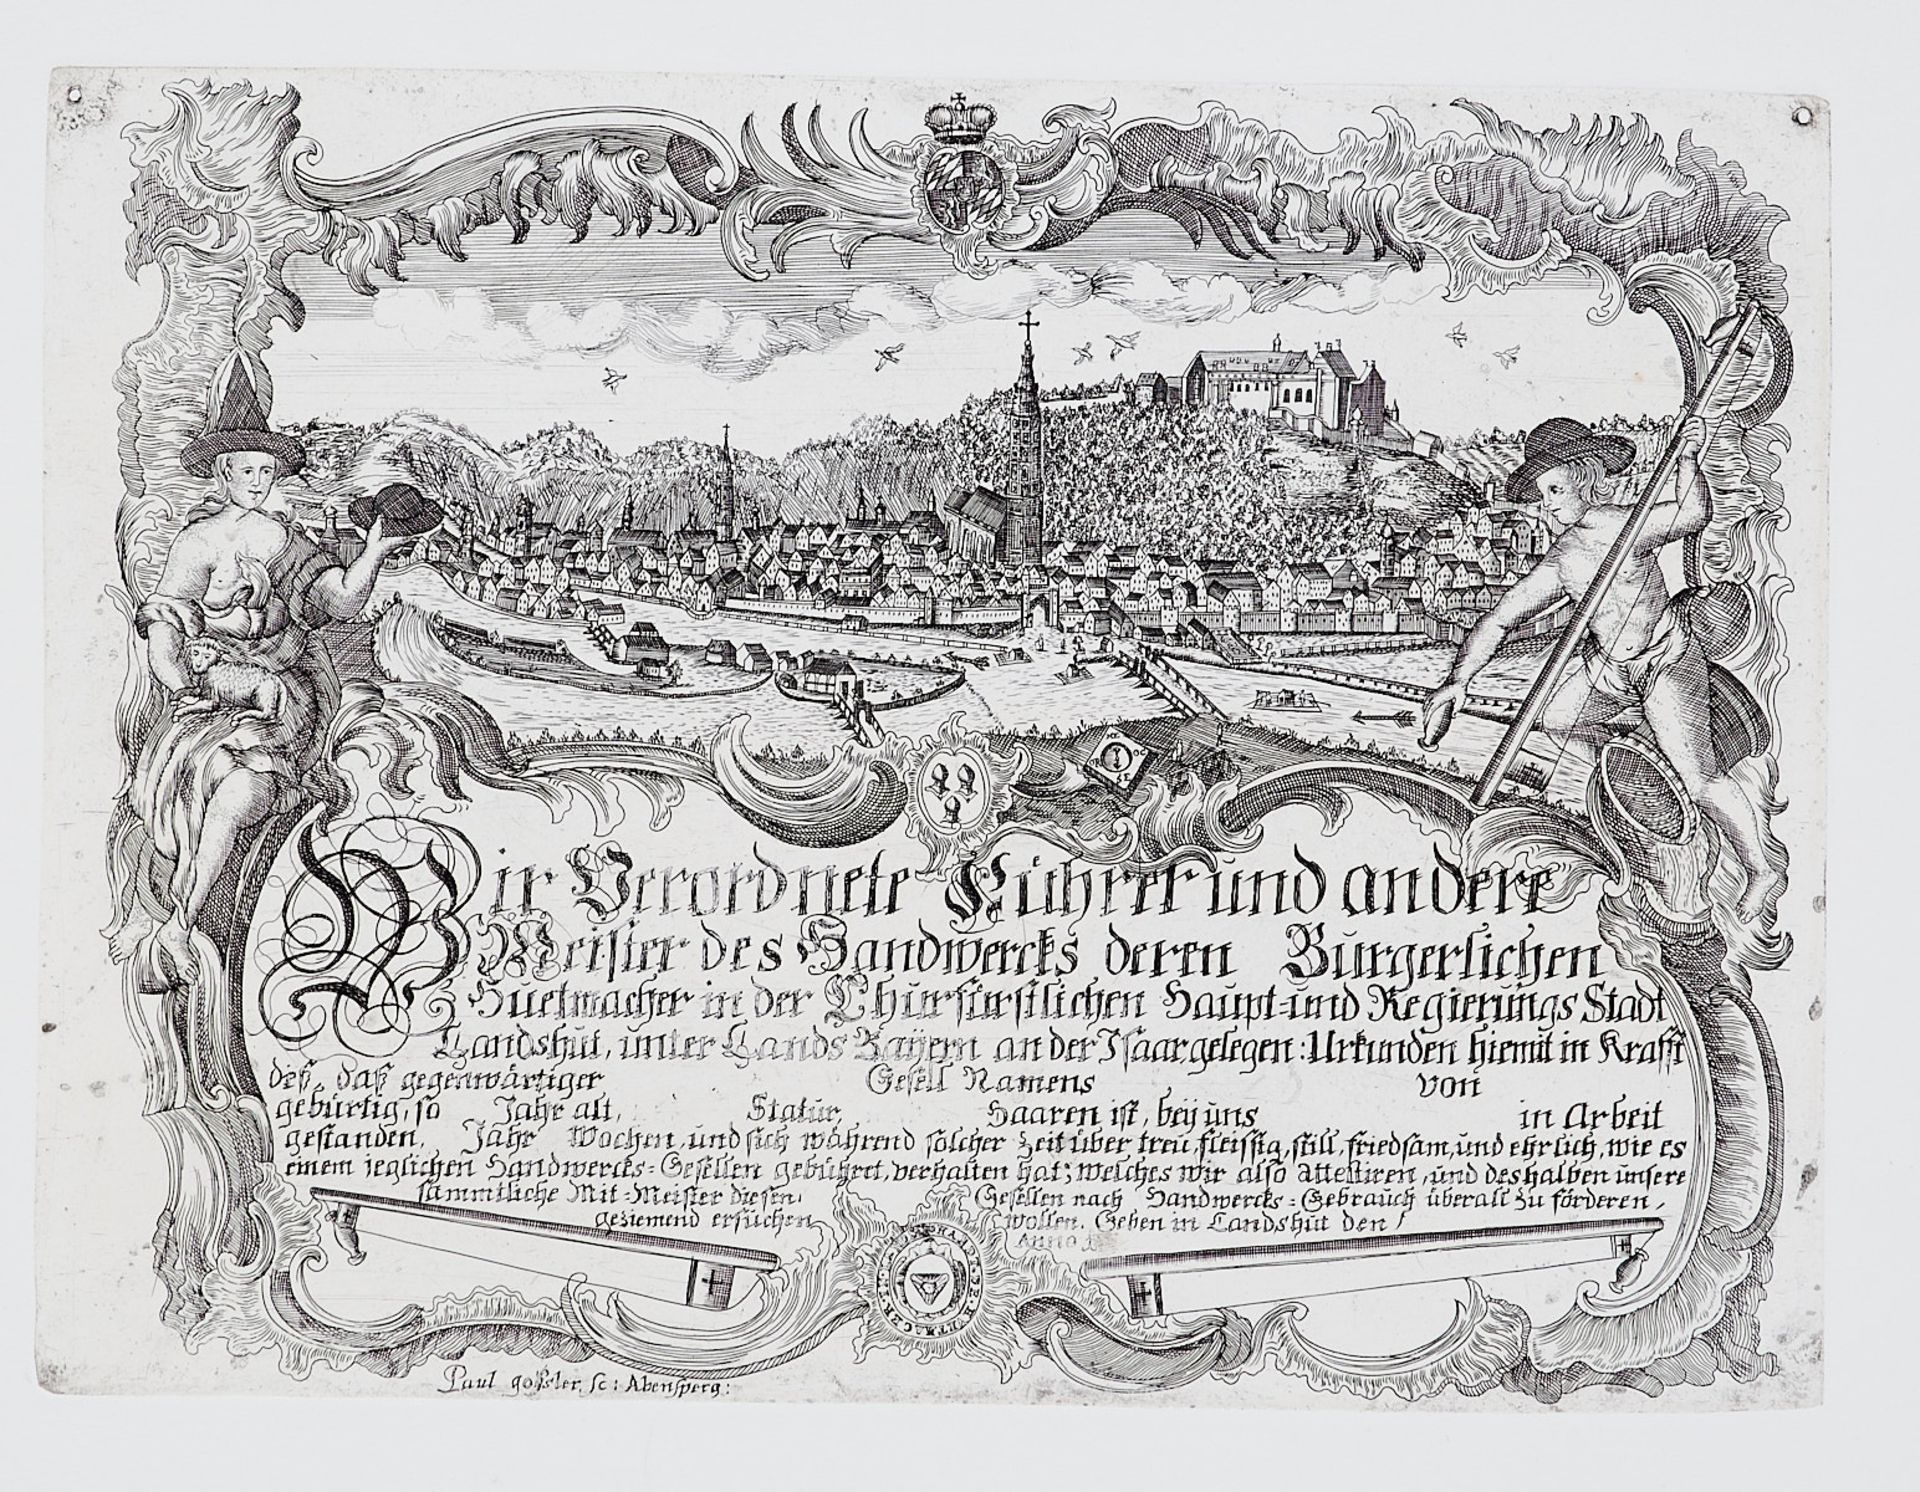 Wir Verordnete Führer und andere
Meister des Handwercks deren Burgerlichen
Huetmacher in der Churfürstlichen Haupt-und Regierungs Stadt
Landshut, unter Lands Bayern an der Isaar gelegen: Urkunden hiemit in Krafft
diß, daß gegenwärtiger Gesell Namens von
gebürtig, so Jahr alt, Statur, Haaren ist, beÿ uns in Arbeit
gestanden, Jahr Wochen, und sich während solcher Zeit über treu, fleissig, still, friedsam, und ehrlich, wie es
einem jeglichen Handwercks=Gesellen gebühret, verhalten hat; welches wir also attestiren, und deshalben unsere
sämmtliche Mit=Meister diesen, Gesellen nach Handwercks=Gebrauch überall zu förderen,
geziemend ersuchen wollen. Geben in Landshut den
Anno 1
Paul goßsler, sc: Abensperg: